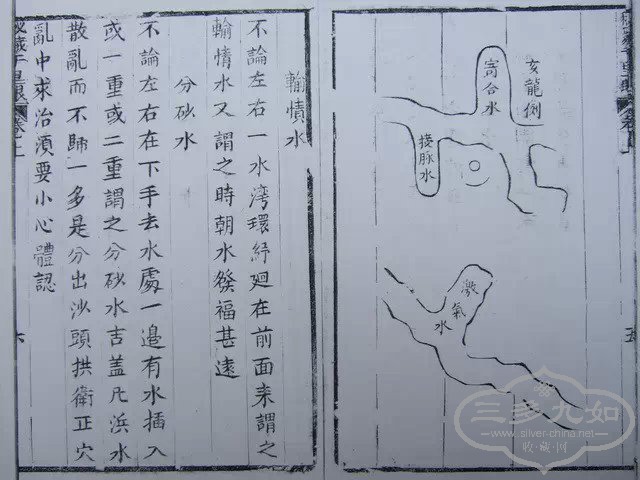 亥龍倒
寄合水
接脉水
激氣水
五
輸情水
不論左右一水湾環紆廻在前面来謂之
輸情水又謂之時朝水發福甚遠
分砂水
不論左右在下手去水處一邉有水插入
或一重或二重謂之分砂水吉盖凡浜水
散亂而不歸一多是分出沙頭拱衛正穴
亂中求治須要小心體認
六
三多九如
www.silver-china.net
收·藏·网